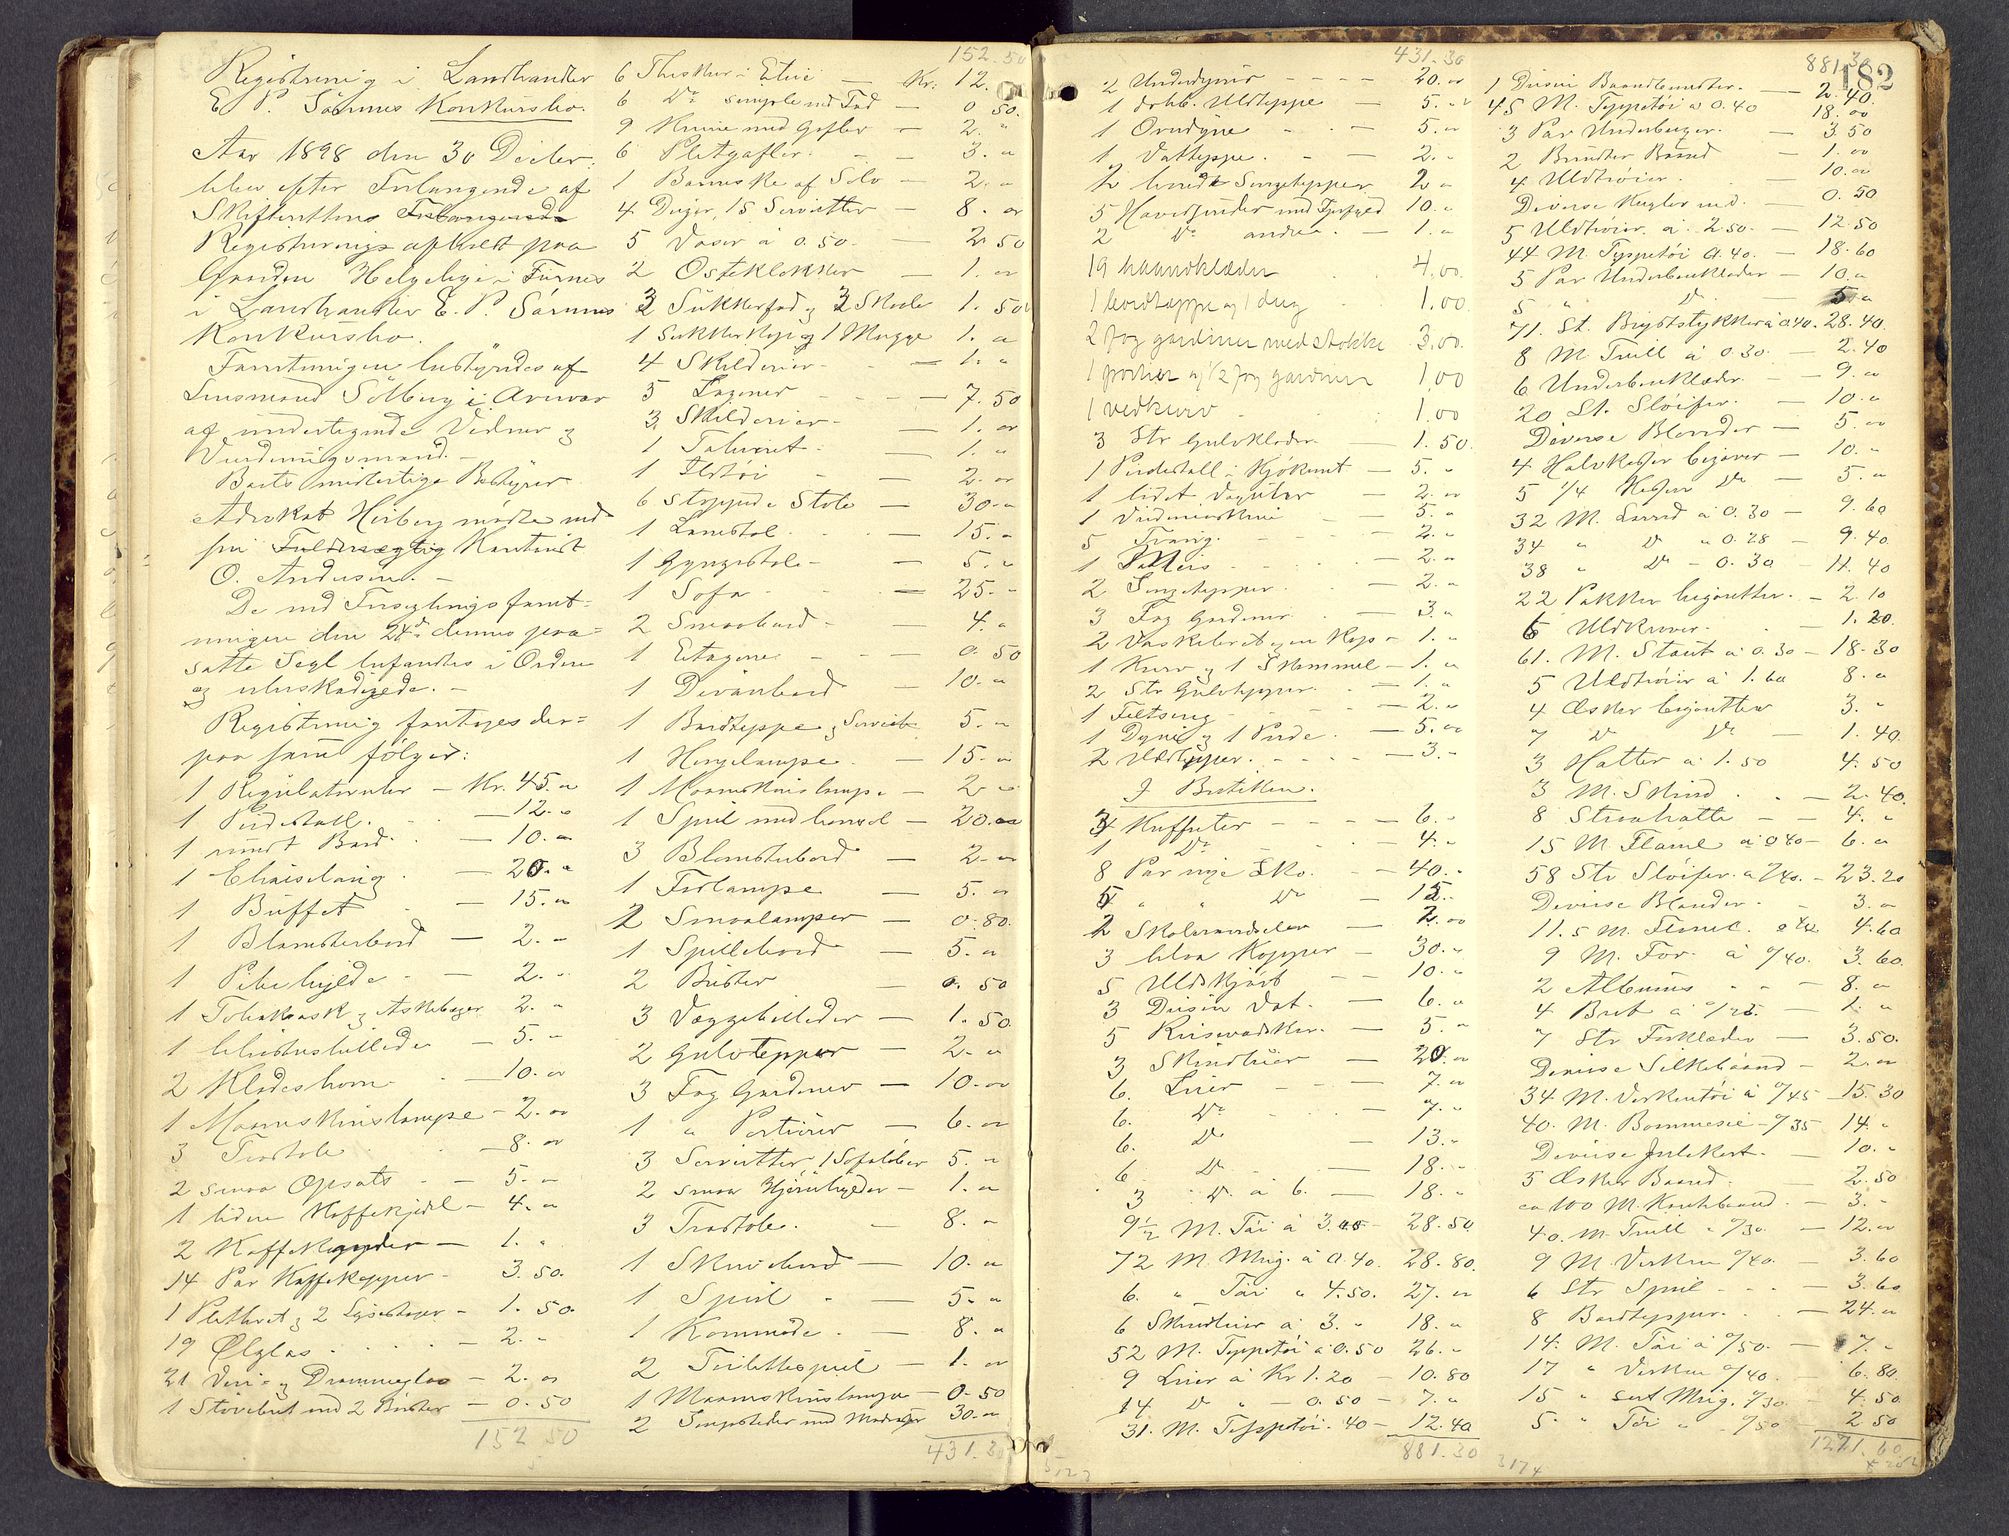 Registrering i Landhandler
E. P. Sørnes Konkursbo.
Aar 1898 den 30 Decber.
blev efter Forlangende af
Skifteretten Forlangende
Registrering afholdt paa
Gaarden Helgeby i Furnes
i Landhandler E. P. Sørnes
Konkursbo.
Forretningen bestyredes af
Lensmand Sølberg i Nærvær
af undertegnede Vidner og
Vurderingsmænd. -
Boets midlertidige Bestyrer
Advokat Hiorberg mødte ved
sin Fuldmægtig Kontorist
O. Andersen. -
De ved Forseglingsforret-
ningen den 28de dennes paa-
satte Segl befandtes i Orden
og ubeskadigede. -
Registrering foretoges der-
paa som følger:
1 Regulatoruhr - Kr. 45. "
1 Piedestal. - 12. "
1 rundt Bord - 10. "
1 Chaiselong - 20. "
1 Buffet - 15. "
1 Blomsterbord - 2. "
1 Pibehylde - 2. "
1 Tobakskask & Askebæger 2. "
1 Christusbillede - 5. "
2 Klædeshorn - 10. "
1 Maaneskinslampe - 2. "
3 Træstole - 8. "
2 smaa Opsats - 5. "
1 liden Kaffekjedel - 4. "
2 Kaffekander - 1. "
14 Par Kaffekopper - 3. 50.
1 Pletbret & 2 Lysestager - 1. 50
19 Ølglas - 2. "
21 Vin- og Dramme glas - 2. "
1 Støvebret med 2 Børster - 0. 50
152 50
152. 50
6 Theskeer i Etui - Kr. 12.
6 Do simple med Fad - 0 50.
9 Knive med Gafler - 2. "
6 Pletgafler. - 3. "
1 Barneske af Sølv - 2. "
4 Duger, 15 Servietter - 8. "
5 Vaser à 0.50. - 2. 50
2 Osteklokker - 1. "
3 Sukkerfad og 3 Skaaler 1. 50
1 Sukkerkop og 1 Mugge 1. "
4 Skilderier - 1. "
5 Lagener - 7. 50
3 Skilderier - 1. "
1 Taburet - 1. "
1 Ildtøi - 2. "
6 stoppede Stole - 30. "
1 Lænestol - 15. "
1 Gyngestol - 5. "
1 Sofa - 25. "
2 Smaabord - 4. "
1 Etagere - 0. 50
1 Divanbord - 10. "
1 Bordteppe & Serviet 5. "
1 Hengelampe. - 15. "
1 Maaneskinslampe - 2. "
1 Speil med konsol - 20. "
3 Blomsterbord - 2. "
1 Fodlampe - 5. "
2 Smaalamper - 0. 80.
1 Spillebord - 5. "
2 Byster - 0. 50
3 Væggebilleder - 1. 50.
2 Gulvtepper - 2. "
3 Fag Gardiner - 10. "
1 " Portierer - 6. "
3 Servietter, 1 Sofaløber 5. "
2 smaa Hjørnhylder - 1. "
3 Træstole. - 8. "
1 Skrivebord - 10. "
1 Speil - 5. "
1 Kommode. - 8. "
2 Toiletspeil - 1. "
1 Maaneskinslampe - 0. 50
2 Sengesteder med Madrasser 30. "
431. 30
431. 30
2 Underdyner - 20. "
1 dobb. Uldteppe - 5. "
1 Overdyne - 5. "
1 Vatteppe. - 2. "
2 hvide Sengetepper 2. "
5 Hovedpuder med Fjærfyld 10. "
2 Do andre. - 1. "
19 haandklæder 4.00
1 bordteppe og 1 dug 1.00
2 fag gardiner med stokke 3.00.
1 portier og 1/2 fag gardiner 1,00
1 vedkurv 1.00
3 Str Gulvklæder - 1. 50.
1 Piedestall i Kjøkkenet - 5. "
1 lidet Vaguhr - 2. "
1 Vridemaskine - 5. "
5 Trang. - 2. "
1 - 2. "
2 Sengetepper. - 2. "
3 Fag Gardiner - 3. "
2 Vaskebret og en Kop - 1. "
1 Kurv og 1 Skammel - 1. "
2 Str Gulvtepper - 1. "
1 Feltseng - 2. "
1 Dyne og 1 Pude. - 5. "
2 Uldtepper. - 3. "
I Butikken.
3 Kufferter - 6. "
1 Do - 4. "
8 Par nye Sko. - 40. "
5 " " Do - 15. "
2 Skolerandsler - 2. "
3 blaa Kopper - 30. "
5 Uldskjørt - 10. "
3 Dusin Vat. - 6. "
5 - 5. "
3 Skindluer - 20. "
6. Luer - 7. "
6. Do - 7. "
6. Do - 13. "
6. Do - 18. "
3 Do à 6. - 18. "
9 1/2 M. Tøi à 3.00 - 28. 50
72 M. Mrig. à 0.40. 28. 80.
6. " Tøi " 4.50. 27. "
6 Skindluer à 3. " 18. "
52 M. Teppetøi à 0.50 26. "
9 Luer à Kr 1.20 - 10. 80
14 Do " - 0.50 - 7. "
31. M. Teppetøi. 40 - 12. 40
881. 30
881.30
182
1 Dusin Baandbundter. - 2. 40.
45 M. Teppetøi à 0.40 18. "
3 Par Underbuxer. - 3. 50
2 Bundter Baand - 1. "
4 Uldtrøier. - 10. "
Diverse Kugler med. - 0. 50
5 Uldtrøier à 2.50. - 12. 50
44 M. Teppetøi 0.40. - 18. 60
5 Par Underbenklæder - 10. "
5 " Do 5. "
71. St. Bryststykker à 0.40. 28. 40.
8 M. Tvill à 0.30. - 2. 40
6 Underbenklæder - 9. "
20 St. Sløifer. - 10. "
Diverse Blonder - 5. "
4 Halvkasser Cigarer - 10. "
5 1/4 Kasser Do - 5. "
32 M. Lærred à 0.30 - 9. 60
34 " Do " 0.28 - 9. 40
38 " Do - 0.30 - 11. 40
22 Pakker Cigaretter. - 2. 10
6 Uldkraver. - 1. 20.
61. M. Stout à 0.30 - 18. 30
5 Uldtrøier à 1.60 8. "
4 Æsker Cigaretter 3. "
7 Do Do - 1. 40.
3 Hatter à 1.50 4. 50
3 M. Skind - 2. 40.
8 Straahatte - 4. "
15 M. Flanel à 0.40 - 6. "
58 Str Sløifer à 0/40. - 23. 20
Diverse Blonder - 3. "
11.5 M. Flanel. à 0/40 4. 60
9 M. For. à 0/40. 3. 60.
2 Albums - 8. "
4 Bret à 0/25. - 1. "
7 Str Forklæder - 3. 50.
Diverse Silkebaand - 2. "
34 M. Verkentøi à 0/45 15. 30
40. M. Bommesie - 0/35 14. "
Diverse Julekort. - 10. "
5 Æsker Baand. - 2. 50
ca 100 M. Kantebaand - 3. "
40. M. Tvill à 0/30. - 12. "
9 M. Verken 0/40. - 3. 60
6 Str Speil - 3. 60
8 Bordtepper. - 24. "
14 M. Tøi à 0/50. - 7. "
17 " Verken 0/40. - 6. 80.
15 " sort Mrig. 0/30. - 4. 50
5. " Tøi " 0/50 - 2 50
1271. 60
3174
5123